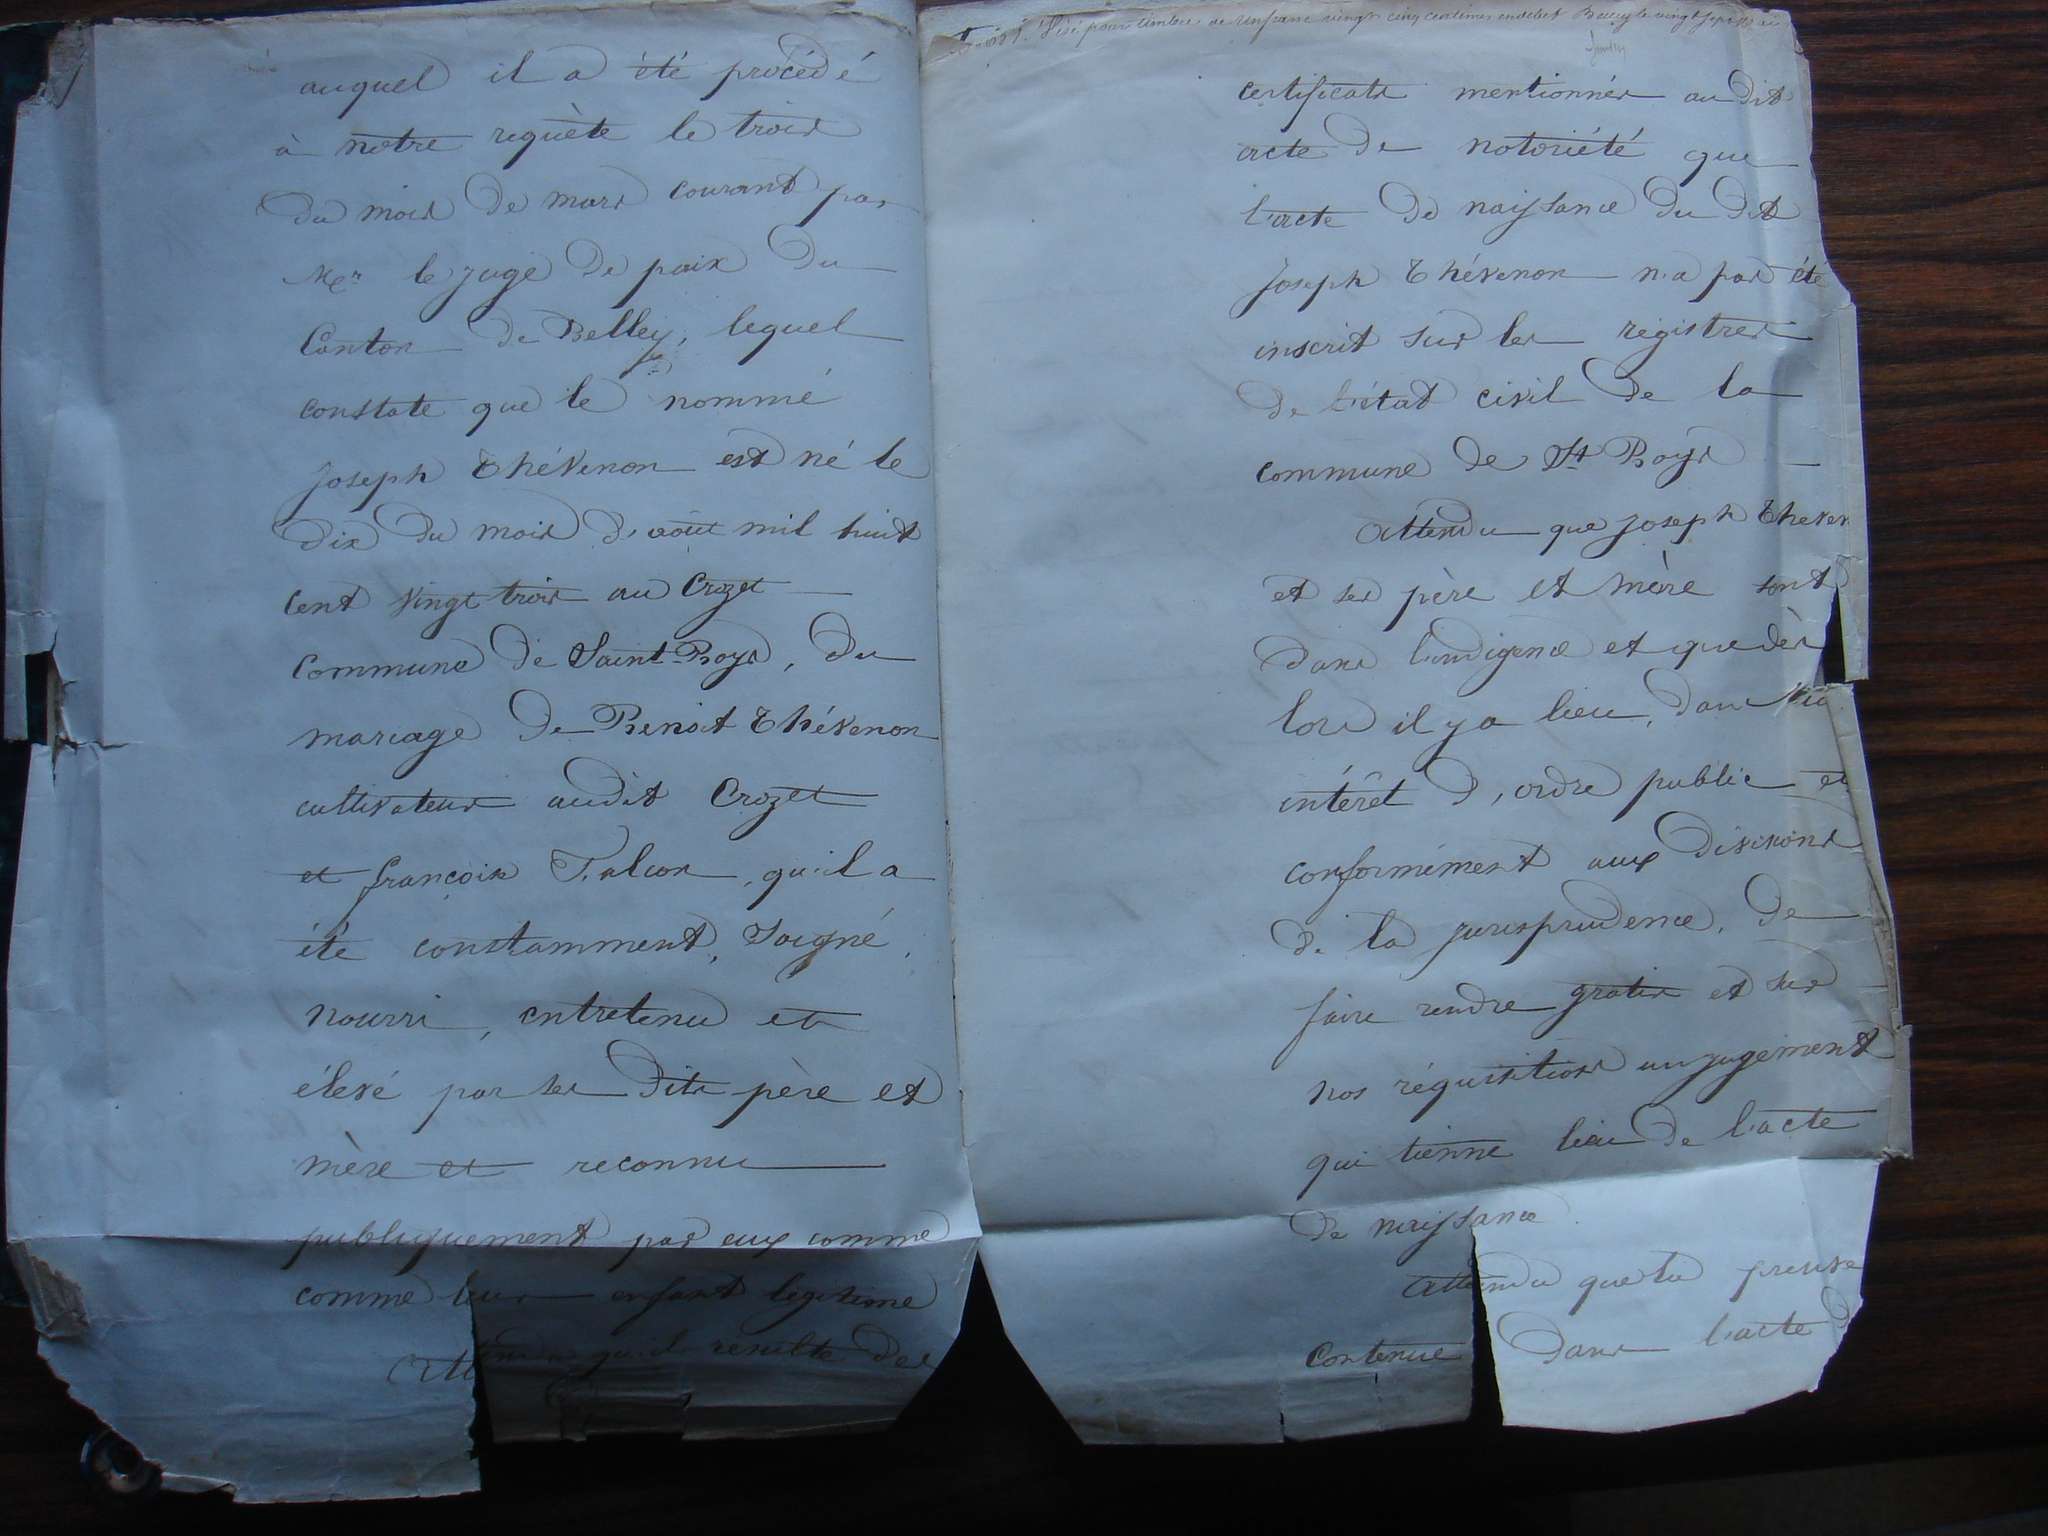 auquel il a été procédé
à notre requète le trois
du mois de mars courant par
Mr le juge de paix du
Canton de Belley, lequel
constate que le nommé
Joseph Thévenon est né le
dix du mois d'août mil huit
cent vingt trois au Crozet
commune de Saint-Boys, du
mariage de Benoit Thévenon
cultivateur audit Crozet
et françoise Falcon, qu'il a
été constamment, soigné,
nourri, entretenu et
élevé par ses dits père et
mère et reconnu
publiquement par eux comme
comme leur enfant légitime
Attendu qu'il résulte des
Visé pour timbre de un franc vingt cinq centimes en debet Belley le vingt sept
certificats mentionnés au dit
acte de notoriété que
l'acte de naissance du dit
Joseph Thévenon n'a pas été
inscrit sur les registres
de l'état civil de la
commune de St Boys
Attendu que Joseph Theven
et ses père et mère sont
dans l'indigence et que dès
lors il y a lieu, dans
intérêt d'ordre public et
conformément aux divisions
de la jurisprudence, de
faire rendre gratis et sur
nos réquisitions un jugement
qui tienne lieu de l'acte
de naissance.
Attendu que la preuve
contenue dans l'acte d